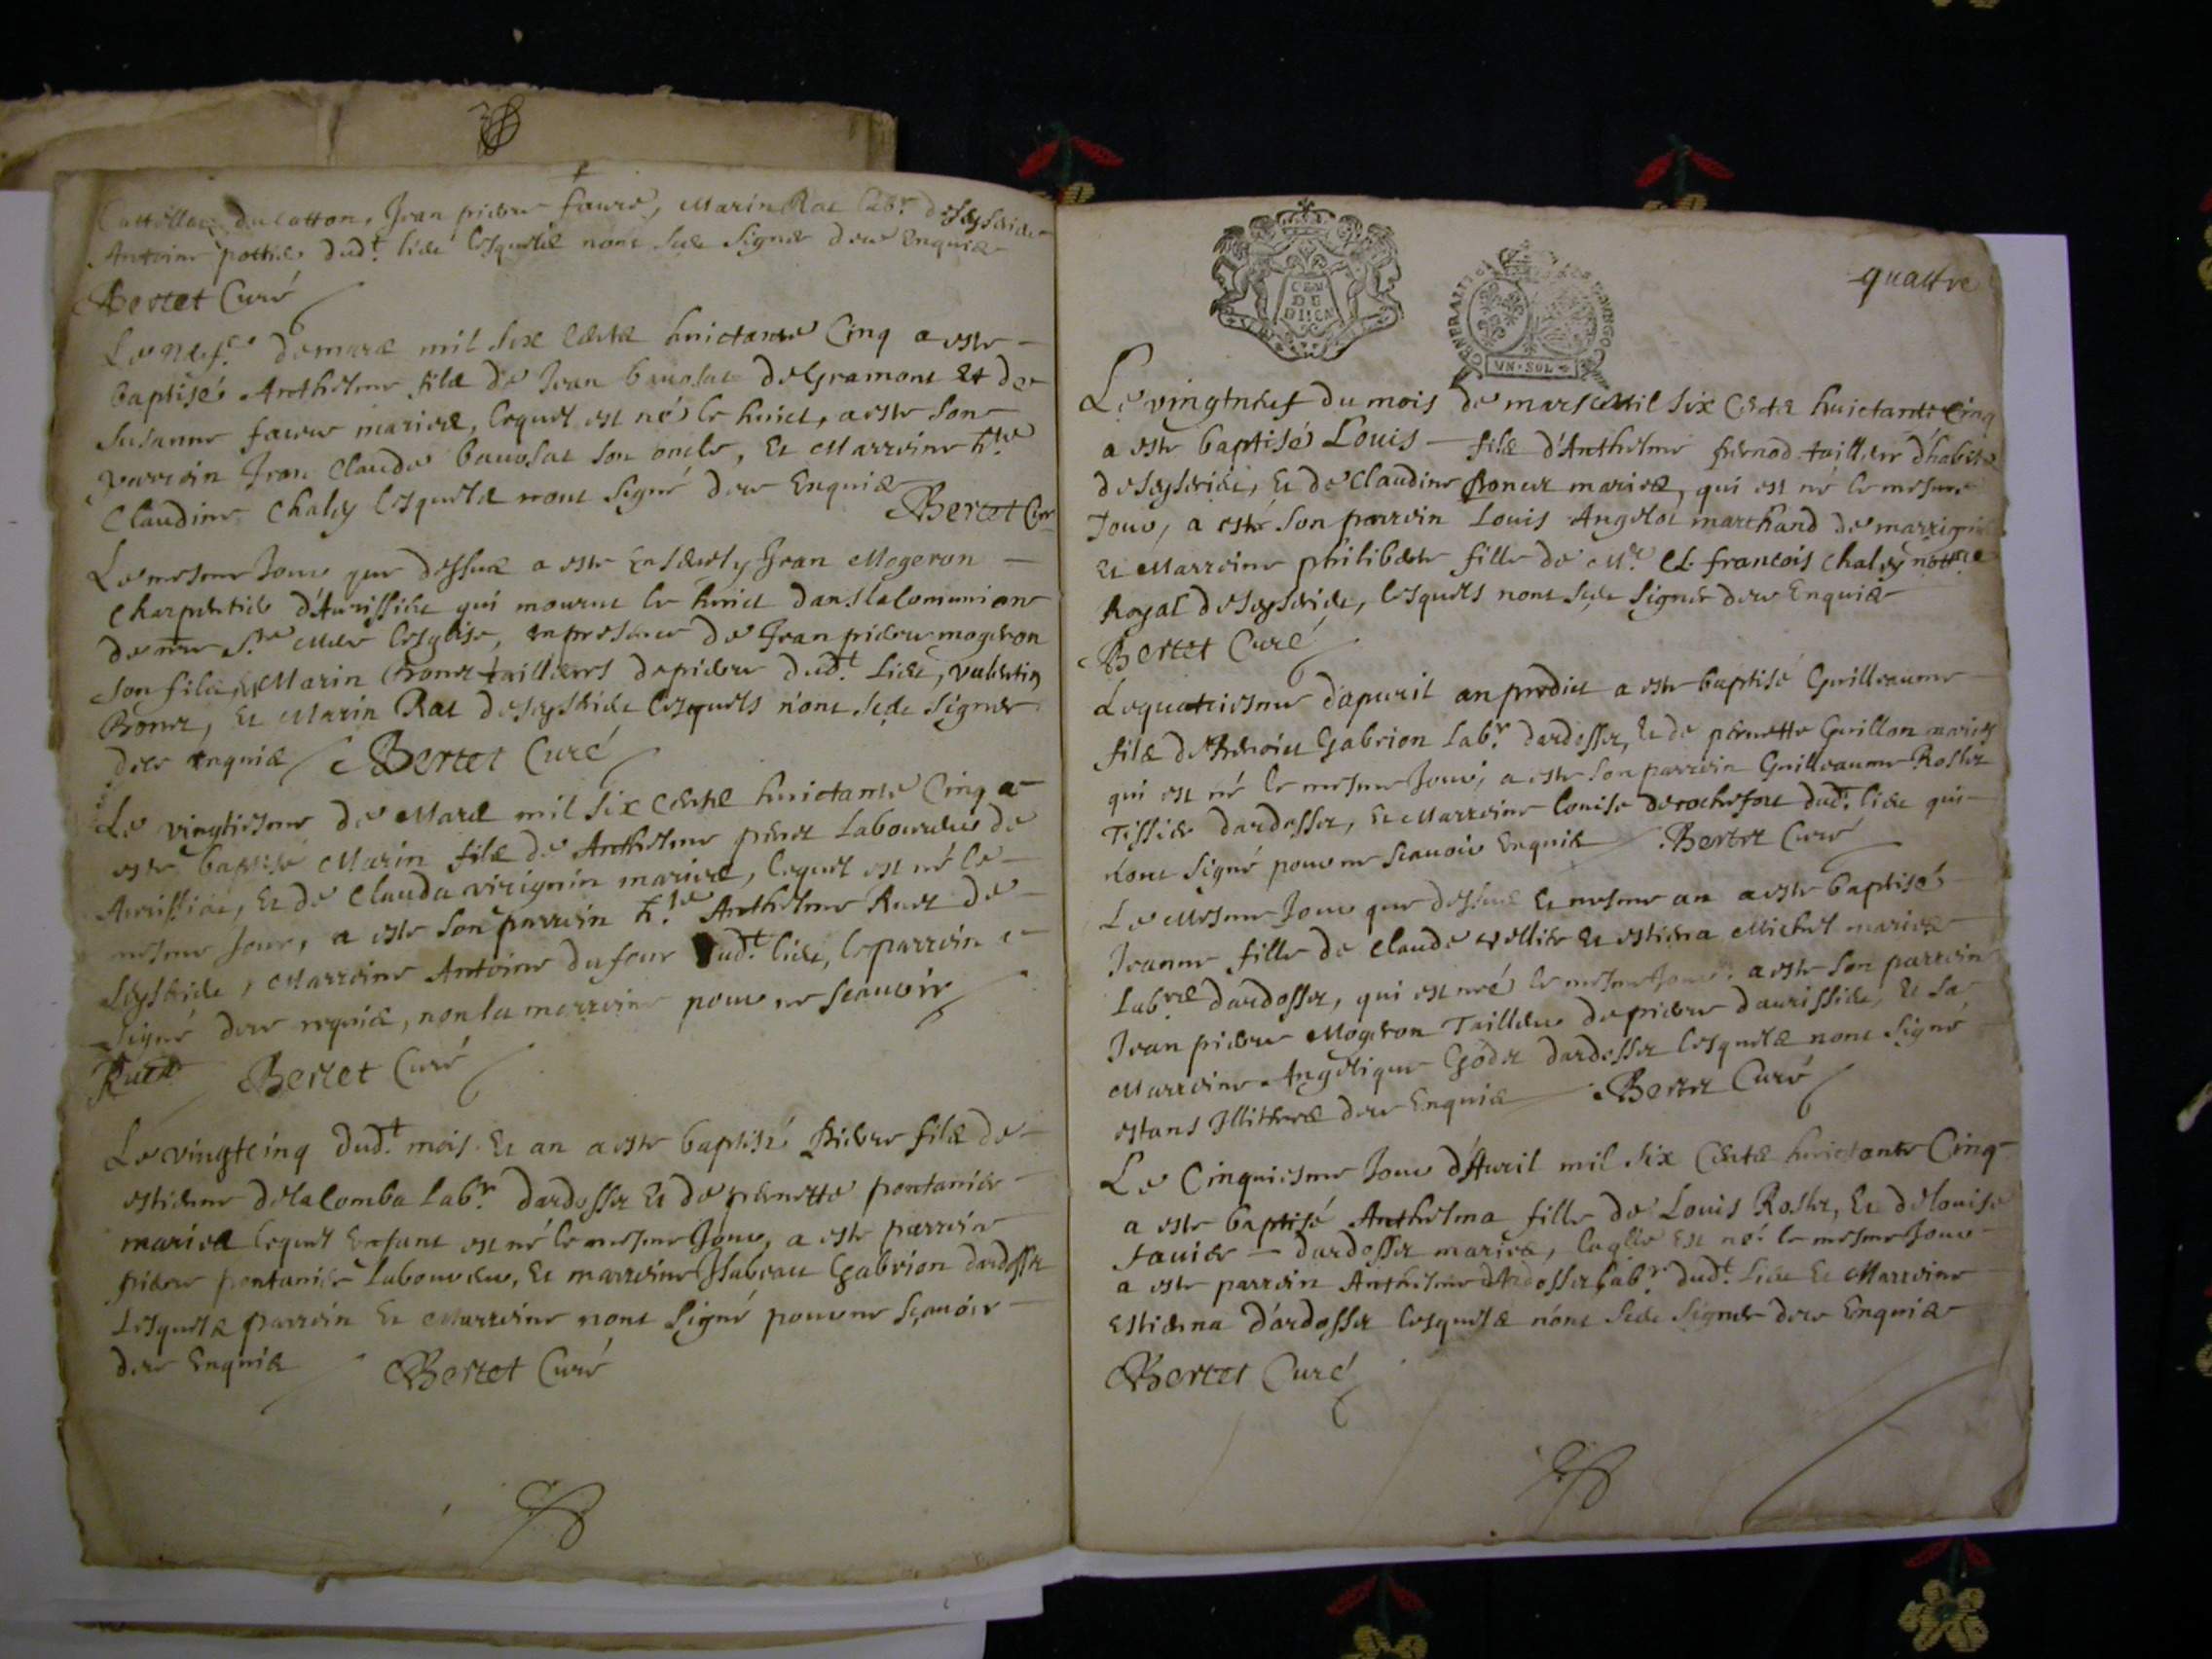 Jean pierre faure, Marin Rat lab.r de Seyssieu
Antoine dud.t lieu lesquels nont sceu signer deux Enquis
Bertet Curé
Le de mars mil six cents huictante Cinq a este
baptisé Anthelme fils de Jean bauosat de Gramont Et de
Susanne faure mariés, lequel est né le huict, a este son
parrein Jean Claude bauosat son oncle, Et Marreine h.te
Claudine Chaley lesquels nont signé deux Enquis
Bertet Curé
Le mesme Jour que dessus a este Enseuely Jean Mogeron
charpentier d'Aurissieu qui mourut le huict dans la comunion
de nre S.te Mere lesglise, en presence de Jean pierre mogeron
son fils, Marin tailleurs de pierre dud.t lieu,
Et Marin Rat de lesquels n'ont sceu signer
deux enquis Bertet Curé
Le vingtiesme de Mars mil six cents huictante Cinq a
este baptisé Marin fils de Anthelme Laboureur de
Aurissieu, Et de Clauda virignin mariés, lequel est né le
mesme Jour, a este son parrein h.te Anthelme Ruet de
Marreine Antoine dufour dud.t lieu, le parrein a
signé deux requis, non la marreine pour ne scauoir
Ruet Bertet Curé
Le vingtcinq dud.t mois Et an a este baptisé pierre fils de
estienne delacomba lab.r dardosset Et de pernette pontanier
mariés lequel Enfant est né le mesme Jour, a este parrein
pierre pontanier laboureur, Et marreine Gabrion dardosset
Lesquels parrein Et Marreine nont signé pour ne sçauoir
deux Enquis Bertet Curé
quattre
GENERALITE
UN·SOL
Le vingtneuf du mois de mars Mil six Cents huictante Cinq
a este baptisé Louis fils d'Anthelme tailleur d'habits
de Et de Claudine mariés, qui est né le mesme
Jour, a esté son parrein Louis Angelot marchand de
Et Marreine philiberte fille de M.e Cl. francois Chaley
Royal de lesquels nont sceu signer deux Enquis
Bertet Curé
Le quatriesme d'apuril an predict a este baptisé Guilleaume
fils de Gabrion lab.r dardosset, Et de pernette Guillon mariés
qui est né le mesme Jour, a este son parrein Guilleaume Rosset
Tissier dardosset, Et Marreine louise derochefort dud.t lieu qui
n'ont signé pour ne scauoir Enquis Bertet Curé
Le Mesme Jour que dessus Et mesme an a este baptisé
Jeanne fille de Claude Et estiena Michel mariés
lab.rs dardosset, qui est neé le mesme Jour, a este son parrein
Jean pierre Mogeron Tailleur de pierre daurissieu, Et sa
Marreine Angelique Godet dardosset lesquels nont signé
estans Illitterés deux Enquis Bertet Curé
Le Cinquiesme Jour d'Auril mil six Cents huictante Cinq
a este baptisé Anthelma fille de Louis Rosset, Et de louise
dardosset mariés, laq.lle Est né le mesme Jour
a este parrein Anthelme dardosset lab.r dud.t lieu Et Marreine
Estiena d'ardosset lesquels n'ont sceu signer deux Enquis
Bertet Curé